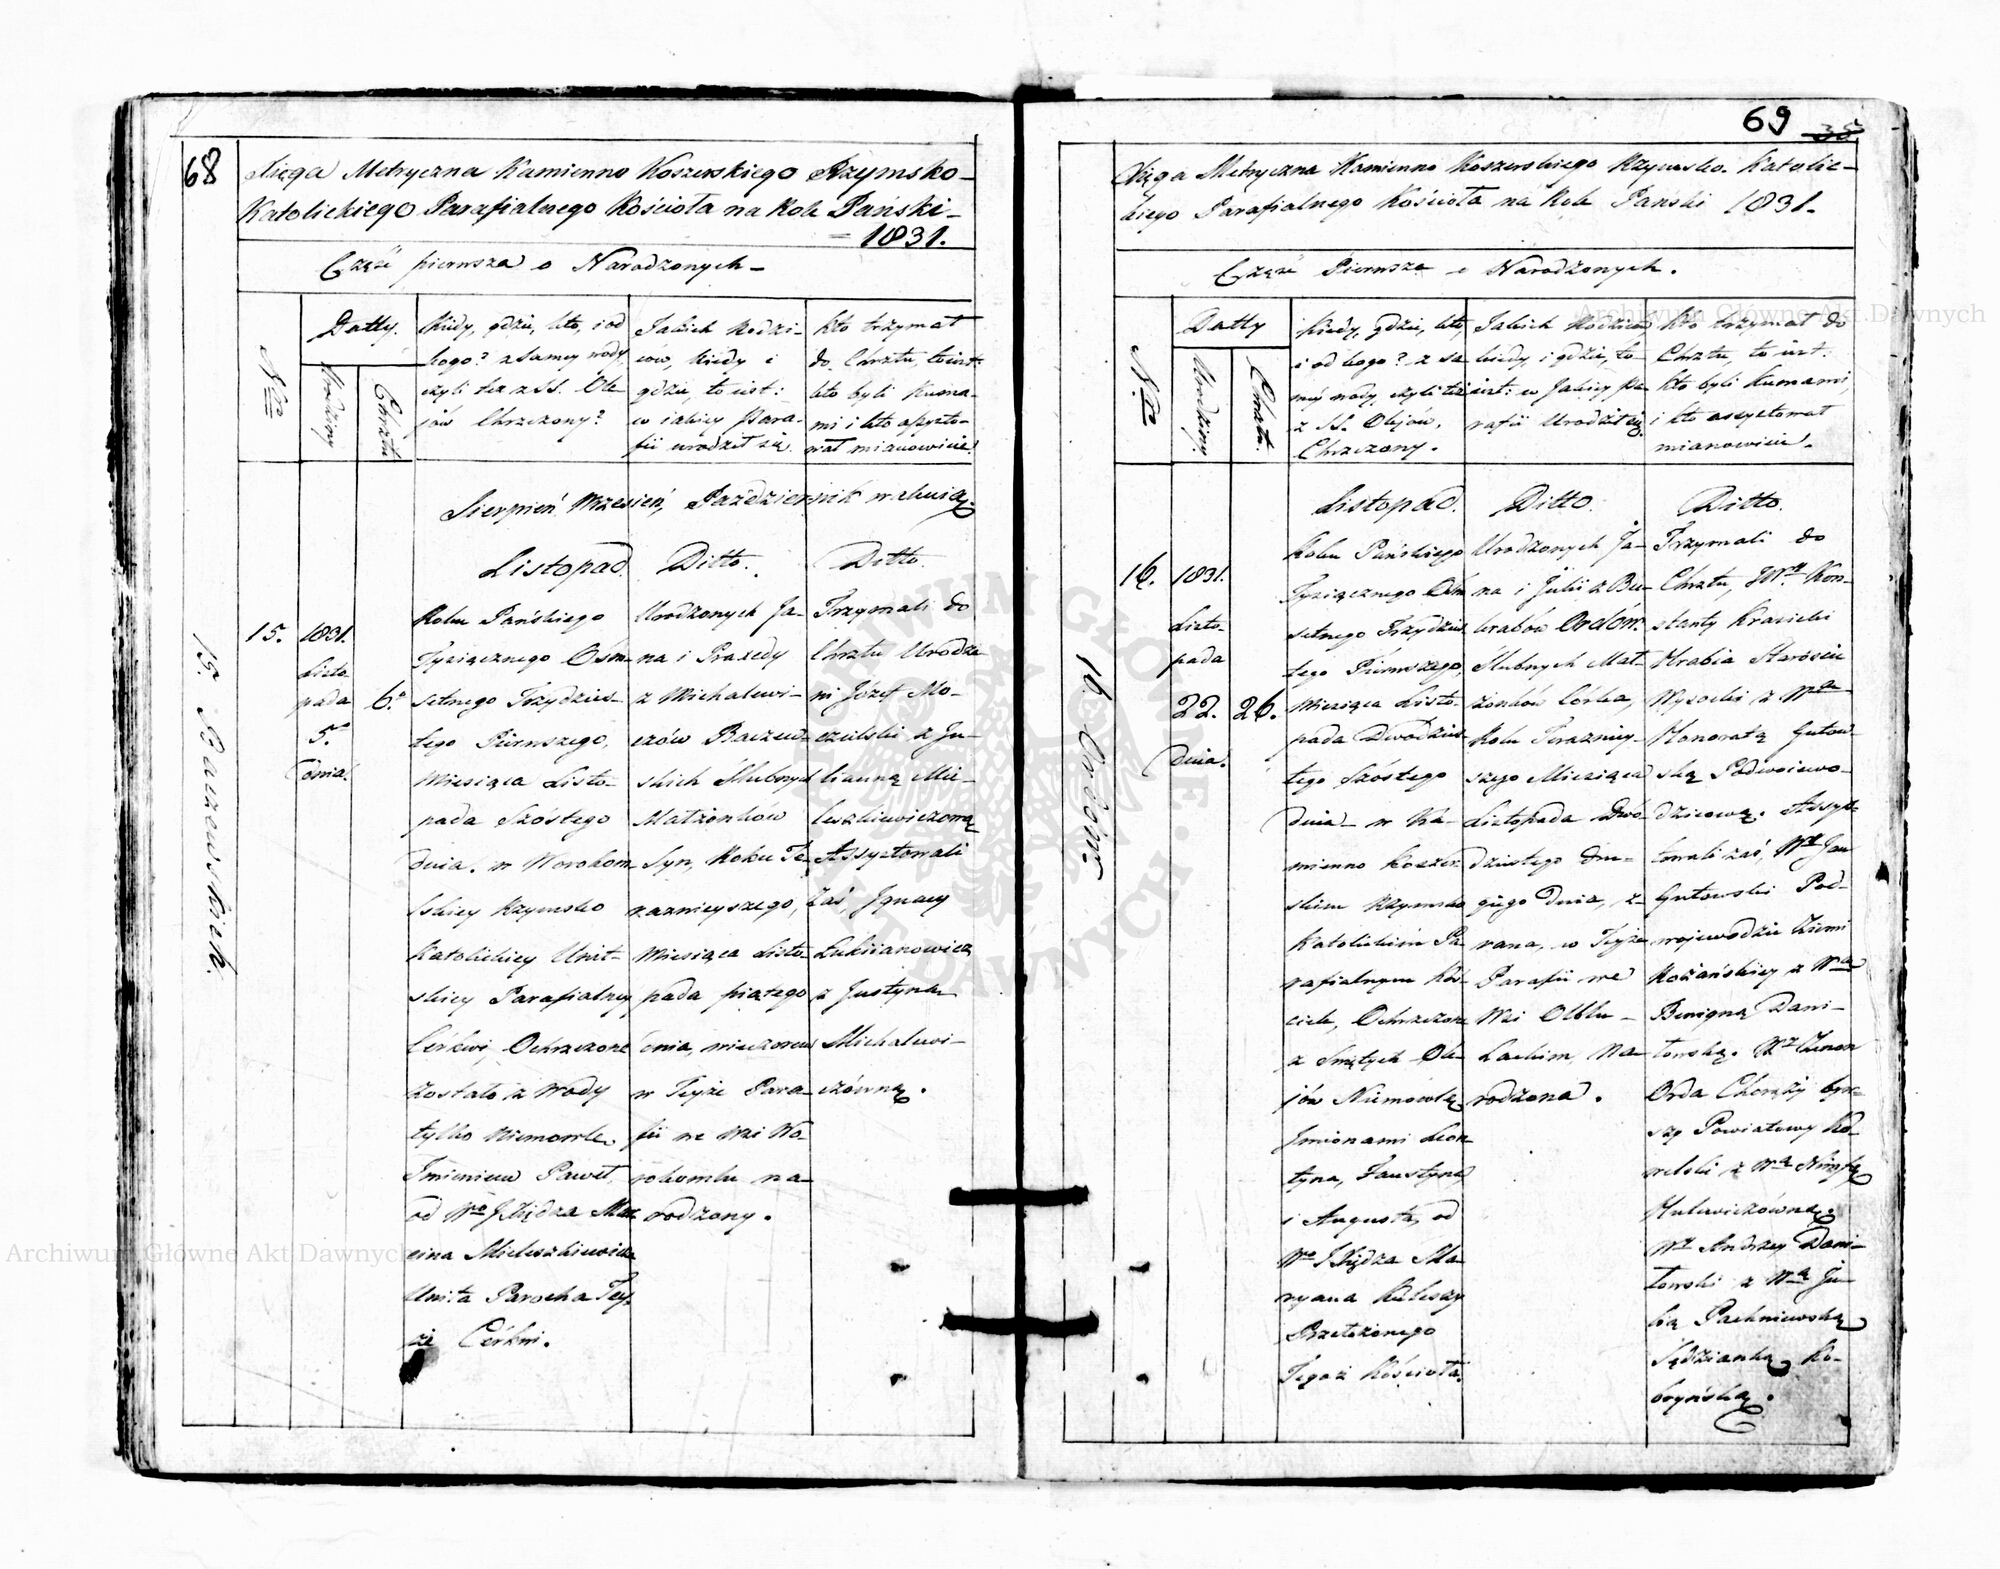 68
Xięga Metryczna Kamienno Koszerskiego Rzymsko-
Katolickiego Parafialnego Kościoła na Rok Pański-
= 1831.
Część pierwsza o Narodzonych-
Nro
Datty.
Urodziny
Chrztu
Kiedy, gdzie, kto, i od
kogo? z samey wody,
czyli też z SS. Ole-
jów Chrzczony?
Jakich Rodzi-
ców, kiedy i
gdzie, to iest:
w iakiey Para-
fii urodził się.
Kto trzymał
do Chrztu, to iest:
kto byli Kuma-
mi i kto assysto-
wał mianowicie.
Sierpień Wrzesień, Październik
Listopad. Ditto. Ditto.
15.
1831.
Listo-
pada
5.
dnia.
6.
15. Baczewskich.
Roku Pańskiego
Tysiącznego Ośm-
setnego Trzydzies-
tego Pierwszego,
Miesiąca Listo-
pada Szóstego
Dnia. w Worokom-
lskiey Rzymsko
Katolickiey Unit-
skiey Parafialney
Cerkwi, Ochrzczone
zostało z Wody
tylko Niemowle
Imieniem Paweł,
od Wo JXiędza Mar-
cina Mieleszkiewicza
Unita Parocha Tey-
że Cerkwi.
Urodzonych Ja-
na i Praxedy
z Michalewi-
czów Baczew-
skich Ślubnych
Małżonków
Syn, Roku Te-
raznieyszego,
Miesiąca Listo-
pada piątego
dnia, wieczorem
w Teyże Para-
fii we Wsi Wo-
rokomlu na-
rodzony.
Trzymali do
Chrztu Urodze-
ni Józef Mo-
czulski z Ju-
lianną Mie-
leszkiewiczową
Assystowali
Zaś, Ignacy
Łukiianowicz
z Justyną
Michalewi-
czówną.
69 35
Xięga Metryczna Kamienno Koszerskiego Rzymsko-Katolic-
kiego Parafialnego Kościoła na Rok Pański 1831.
Część Pierwsza o Narodzonych.
Nro
Datty
Urodziny
Chrztu.
Kiedy, gdzie, kto,
i od kogo? z sa-
mey wody, czyli też
z SS. Olejów,
Chrzczony.
Jakich Rodziców
kiedy, i gdzie, to
iest: w Jakiey Pa-
rafii Urodził się.
Kto trzymał do
Chrztu, to iest:
kto byli Kumami,
i kto assystował
mianowicie.
Listopad. Ditto. Ditto.
16.
1831.
Listo-
pada
22.
Dnia.
26.
16. Ordów
Roku Pańskiego
Tysiącznego Ośm-
setnego Trzydzies-
tego Pierwszego,
Miesiąca Listo-
pada Dwódzies-
tego Szóstego
Dnia w Ka-
mienno Koszer-
skim Rzymsko
Katolickim Pa-
rafialnym Koś-
ciele, Ochrzczone
z Swiętych Ole-
jów Niemowlę
Imionami Leon-
tyna, Faustyna
i Augusta, od
Wo JXiędza Ma-
ryana Kuleszy
Przełożonego
Tegoż Kościoła.
Urodzonych Ja-
na i Julii z Bu-
Ordów.
Ślubnych Mał-
żonków Córka,
Roku Teraznieys-
szego Miesiąca
Listopada Dwó-
dziestego dru-
giego Dnia, z-
rana, w Teyże
Parafii we
Wsi Olblu-
Lackim, Na-
rodzona.
Trzymali do
Chrztu, JW. Kon-
stanty Krasicki
Hrabia Starościc
Wysocki z Wą
Honoratą Gutow-
ską Podwoiewo-
dzicową. Assys-
towali zaś, W. Jan
Gutowski Pod-
wojewodzic Ziemi
Rożańskiey z Wą
Benigną Dani-
łowską. W. Zenon
Orda Chorąży były
Powiatowy Ko-
welski z Wą Nimfą
Hulewiczówną.
W. Andrzey Dani-
łowski z Wą Ju-
lią Pachniewską
Sędzianką Ko-
bryńską.
Archiwum Główne Akt Dawnych
Archiwum Główne Akt Dawnych
ARCHIWUM GŁÓWNE AKT DAWNYCH